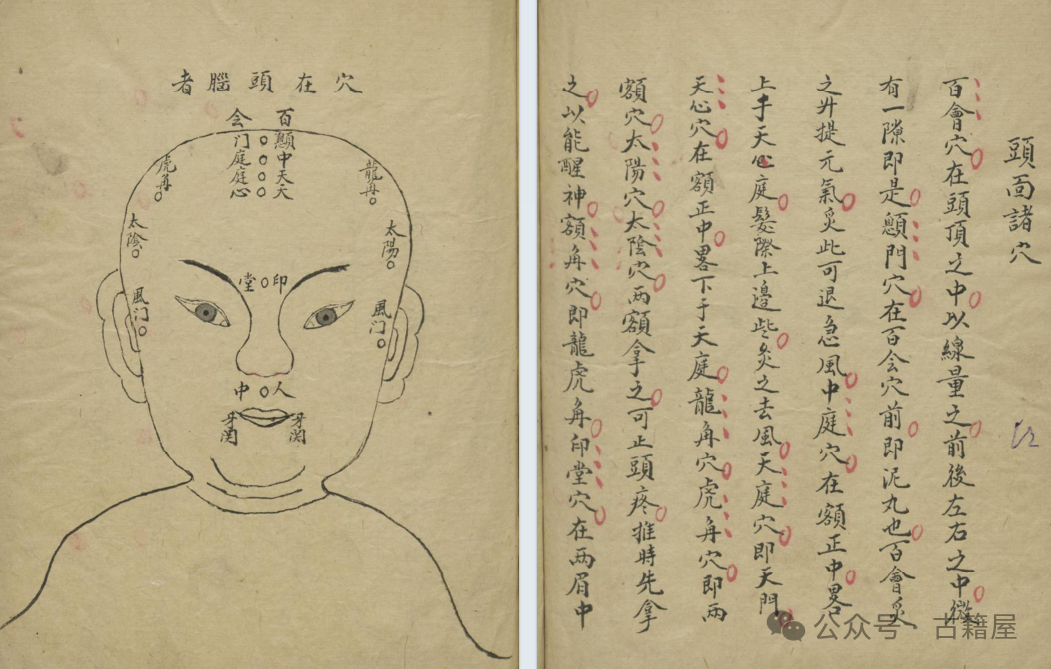 頭面諸穴
百會穴在頭頂之中以線量之前後左右之中微
有一隙即是顖門穴在百会穴前即泥丸也百會灸
之升提元氣灸此可退急風中庭穴在額正中畧
上于天心庭髮際上邊些灸之去風天庭穴即天門
天心穴在額正中畧下于天庭龍角穴虎角穴即兩
額穴太陽穴太陰穴兩額拿之可止頭疼推時先拿
之以能醒神額角穴即龍虎角印堂穴在兩眉中
穴在頭腦者
百会
顖门
中庭
天庭
天心
龍角
虎角
太陽
太陰
印堂
風门
風门
人中
牙関
牙関
公众号 古籍屋